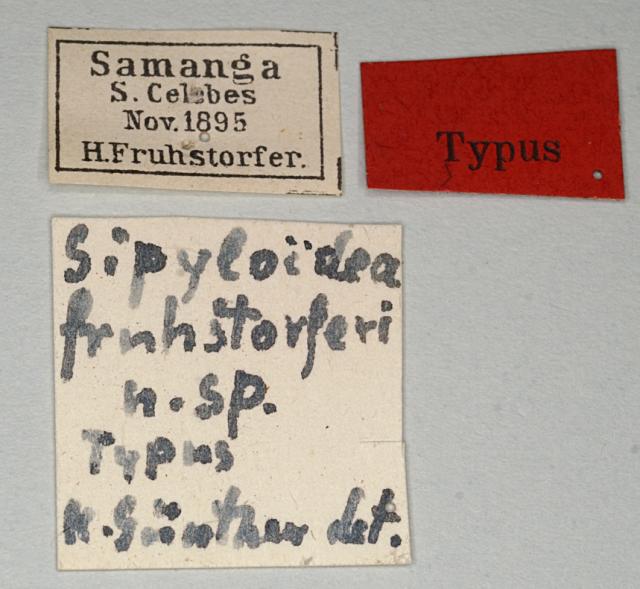 Samanga
S. Celebes
Nov. 1895
H. Fruhstorfer.
Typus
Sipyloïdea
fruhstorferi
n. sp.
Typus
K. Günther det.